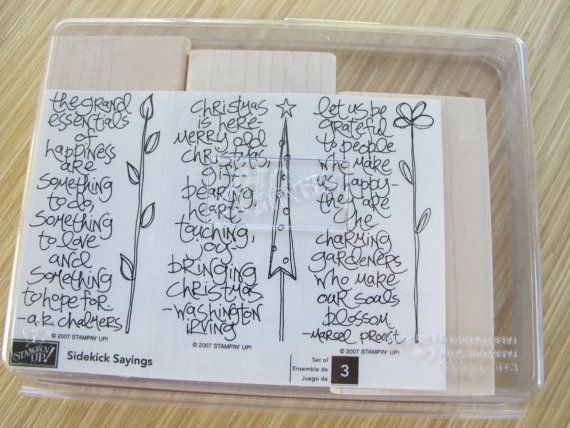 the grand
essentials
of
happiness
are
something
to do,
something
to love
and
something
to hope for.
-a.k. chalmers
© 2007 STAMPIN' UP!
christmas
is here-
merry old
christmas,
gift-
bearing,
heart-
touching,
joy-
bringing
christmas.
-washington
irving
© 2007 STAMPIN' UP!
let us be
grateful
to people
who make
us happy-
they are
the
charming
gardeners
who make
our souls
blossom.
-marcel proust
© 2007 STAMPIN' UP!
STAMPIN' UP!
Sidekick Sayings
Set of
Ensemble de
Juego de
3